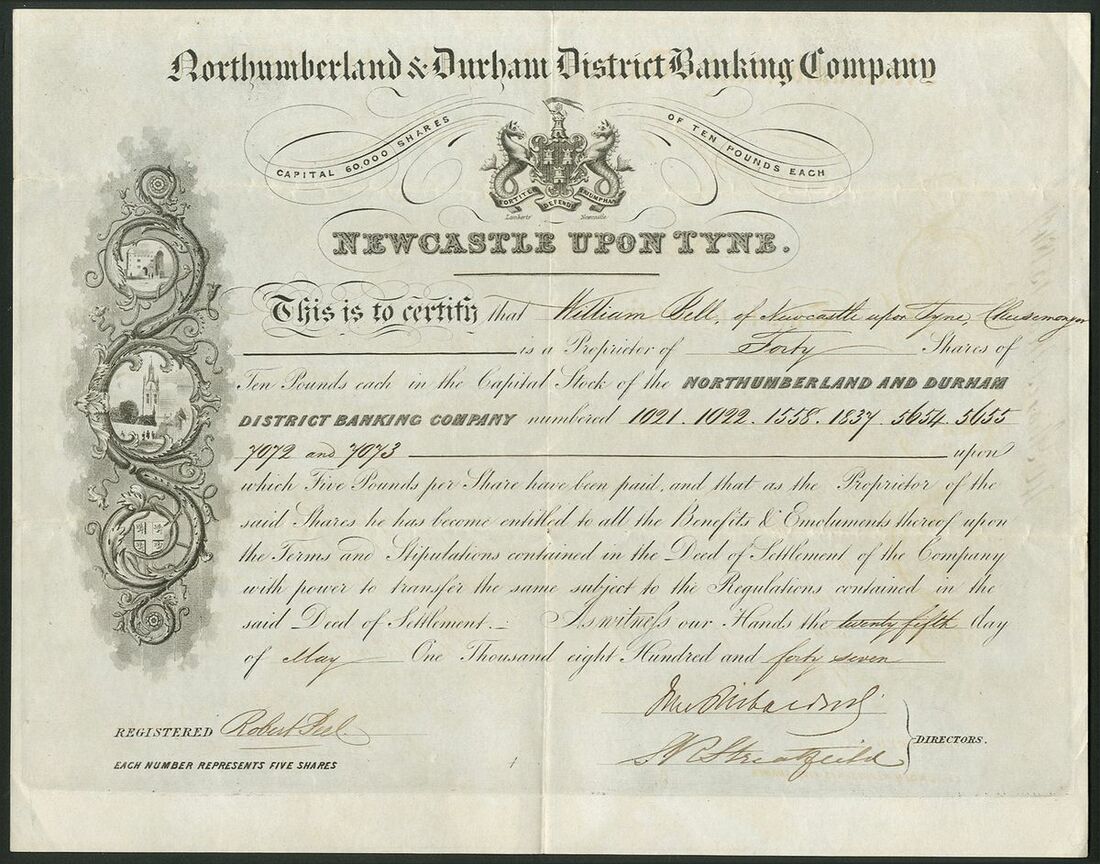 Northumberland & Durham District Banking Company
CAPITAL 60,000 SHARES OF TEN POUNDS EACH
FORTITER DEFENDIT TRIUMPHANS
Lamberts Newcastle
NEWCASTLE UPON TYNE.
This is to certify that William Bell, of Newcastle upon Tyne, Cheesemonger
is a Proprietor of Forty Shares of
Ten Pounds each in the Capital Stock of the NORTHUMBERLAND AND DURHAM
DISTRICT BANKING COMPANY numbered 1021. 1022. 1558. 1837. 5654. 5655
7072 and 7073 upon
which Five Pounds per Share have been paid, and that as the Proprietor of the
said Shares he has become entitled to all the Benefits & Emoluments thereof upon
the Terms and Stipulations contained in the Deed of Settlement of the Company
with power to transfer the same subject to the Regulations contained in the
said Deed of Settlement.: As witness our Hands the twenty fifth day
of May One Thousand eight Hundred and forty seven
REGISTERED Robert
S R Streatfeild
DIRECTORS.
EACH NUMBER REPRESENTS FIVE SHARES